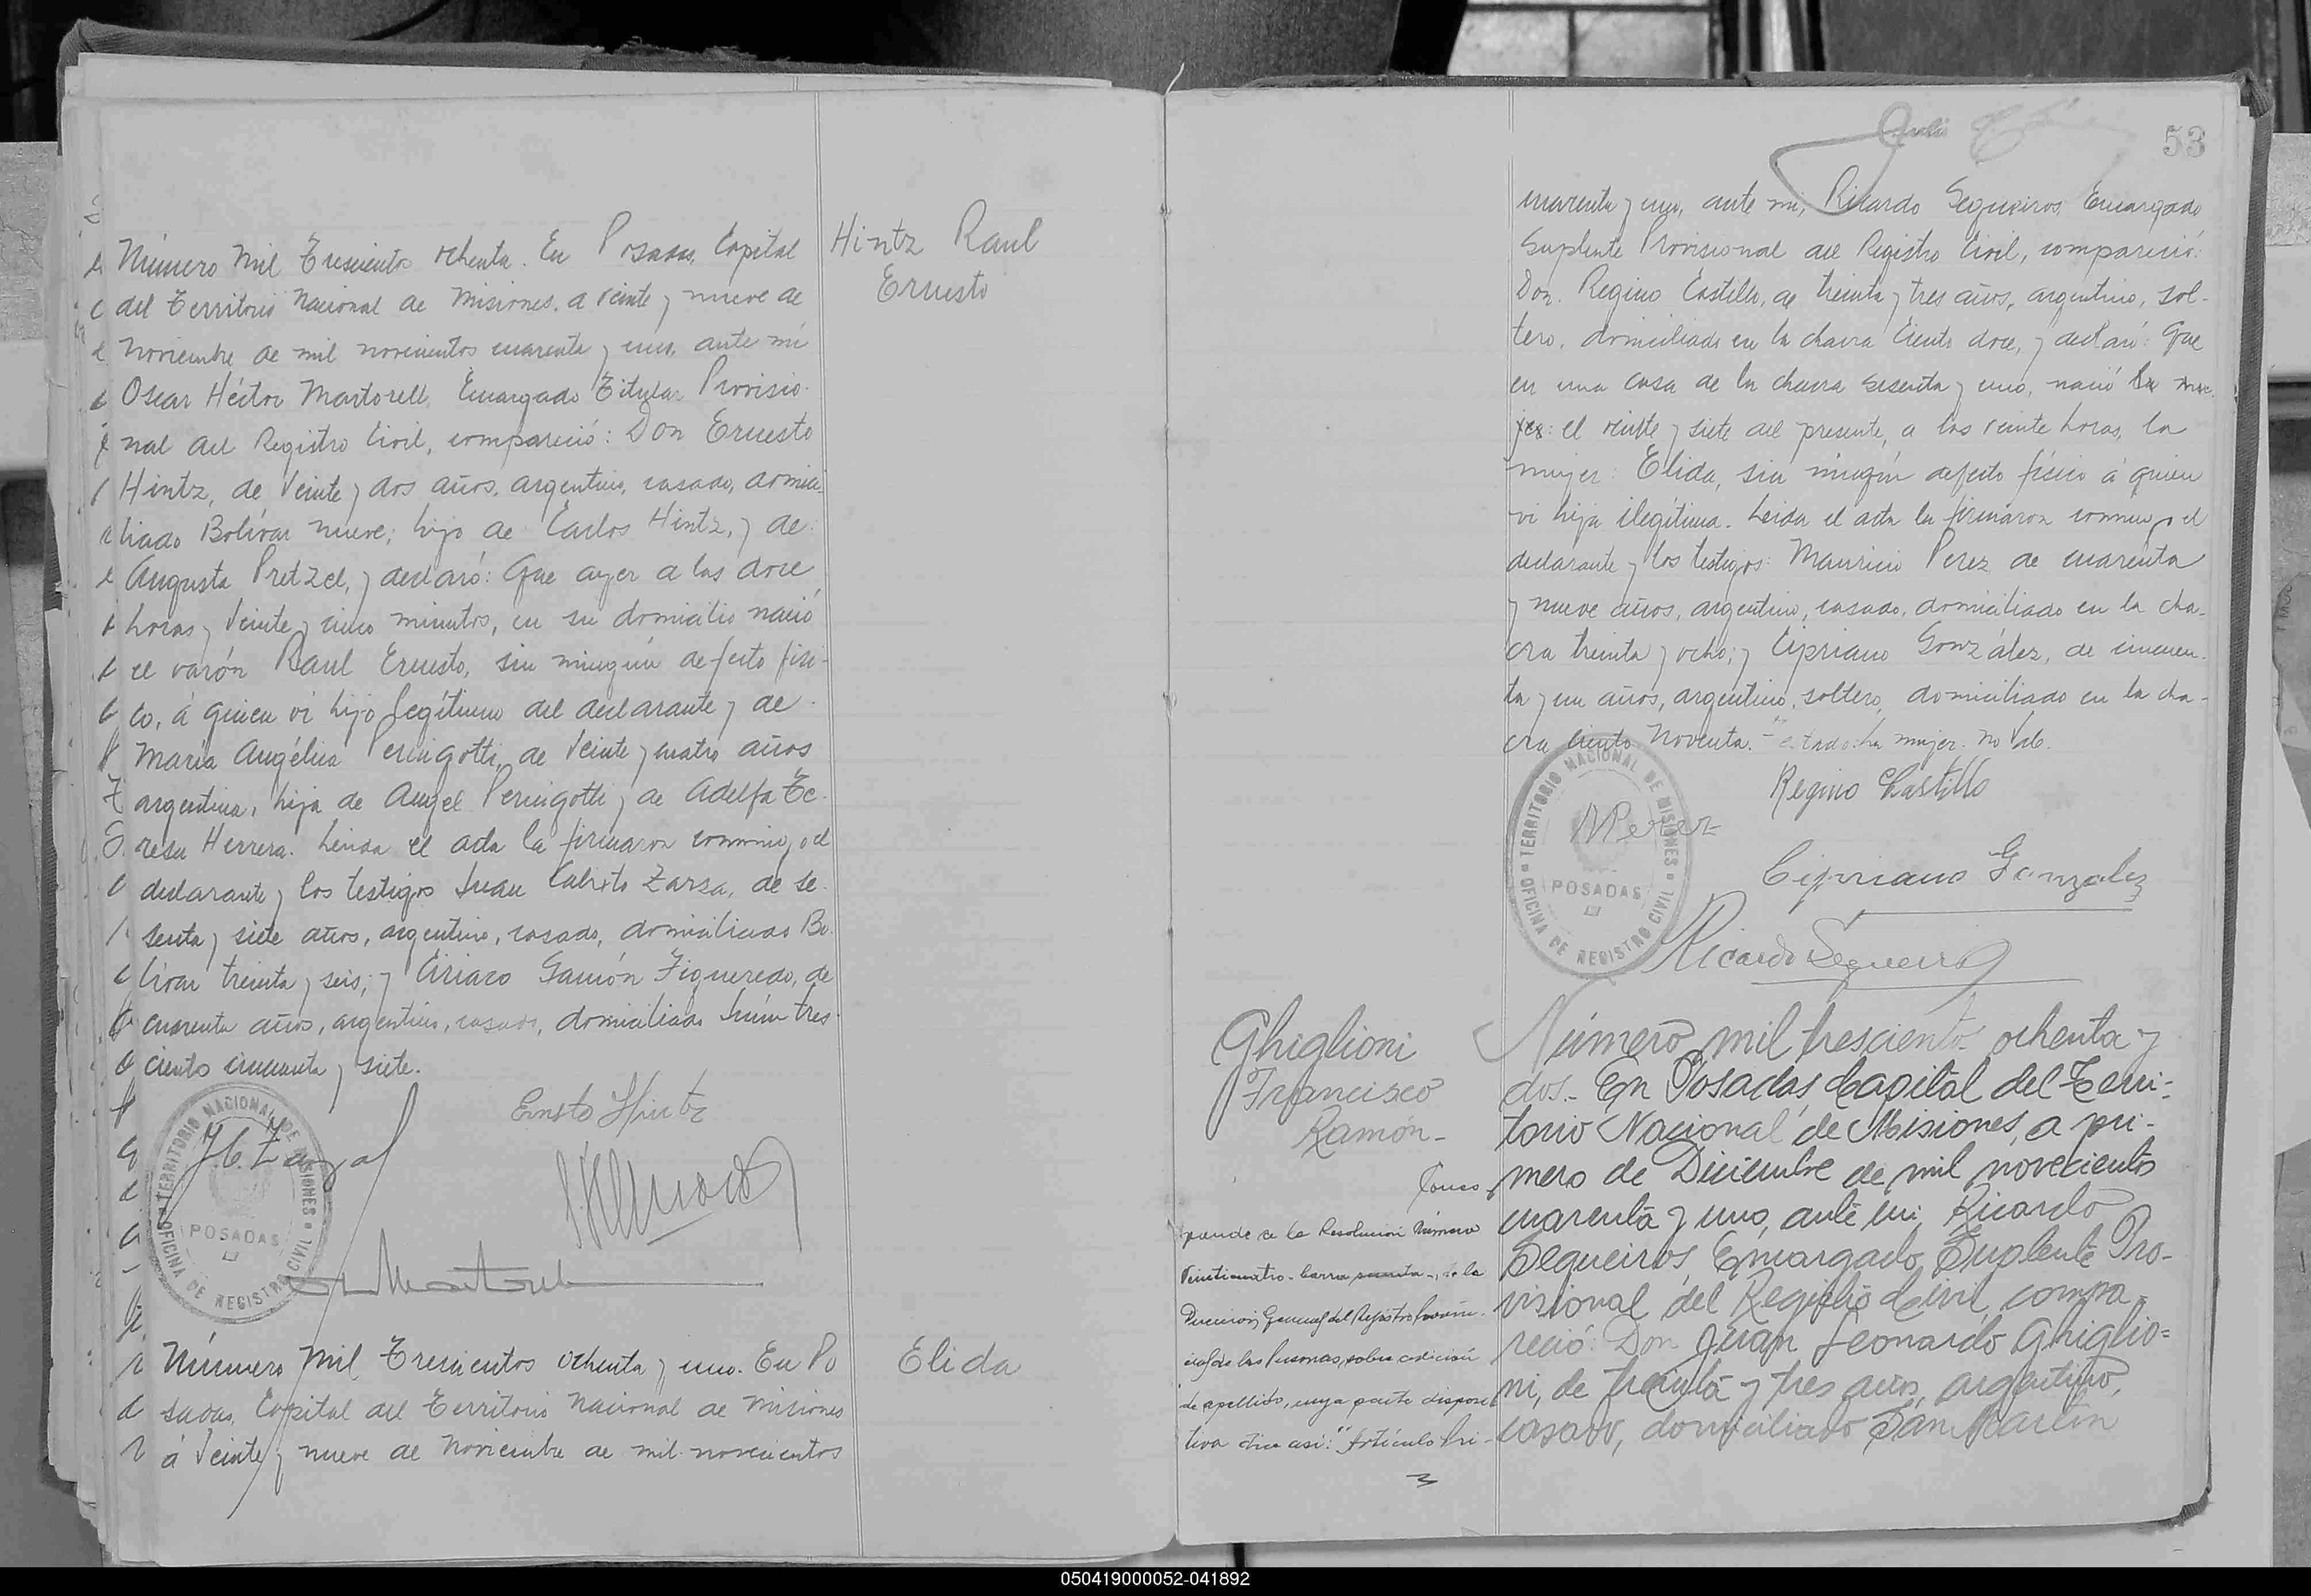 Número Mil Trescientos ochenta. En Posadas, Capital
del Territorio Nacional de Misiones, a veinte y nueve de
Noviembre de mil novecientos cuarenta y uno, ante mí
Oscar Héctor Martorell, Encargado Titular Provisio-
nal del Registro Civil, compareció: Don Ernesto
Hintz, de veinte y dos años, argentino, casado, domici-
liado Bolívar nueve; hijo de Carlos Hintz, y de
Augusta Pretzel, y declaró: Que ayer a las doce
horas y veinte y cinco minutos, en su domicilio nació
el varón Raul Ernesto, sin ningún defecto físi-
co, á quien ví hijo legítimo del declarante y de
María Angélica Peringotti, de veinte y cuatro años
argentina, hija de Angel Peringotti y de Adelfa Te-
resa Herrera. Leida el acta la firmaron conmigo, el
declarante y los testigos Juan Calixto Zarza, de se-
senta y siete años, argentino, casado, domiciliado Bo-
lívar treinta y seis; y Ciriaco Gamón Figueredo, de
cuarenta años, argentino, casado, domiciliado Junín tres
ciento cincuenta y siete.
Hintz Raul
Ernesto
Ernesto Hintz
J. C. Zarza
TERRITORIO NACIONAL DE MISIONES
POSADAS
OFICINA DE REGISTRO CIVIL
Número Mil Trescientos ochenta y uno. En Po
sadas, Capital del Territorio Nacional de Misiones
á veinte y nueve de Noviembre de mil novecientos
Elida
53
cuarenta y uno, ante mi, Ricardo Sequeiros, Encargado
Suplente Provisional del Registro Civil, compareció:
Don. Regino Castillo, de treinta y tres años, argentino, sol-
tero, domiciliado en la chacra Ciento doce, y declaró: Que
en una casa de la chacra sesenta y uno, nació la mu-
jer: el veinte y siete del presente, a las veinte horas, la
mujer: Elida, sin ningún defecto físico á quien
ví hija ilegítima. Leida el acta la firmaron conmigo, el
declarante y los testigos: Mauricio Perez de cuarenta
y nueve años, argentino, casado, domiciliado en la cha-
cra treinta y ocho; y Cipriano González, de cincuen-
ta y un años, argentino, soltero, domiciliado en la cha-
cra ciento noventa. - tado: la mujer. no vale.
Regino Castillo
M Perez
Cipriano Gonzalez
Ricardo Sequeiros
TERRITORIO NACIONAL DE MISIONES
POSADAS
OFICINA DE REGISTRO CIVIL
Ghiglioni
Francisco
Ramón-
ponde a la Resolución Número
Veinticuatro - barra - de la
Dirección General del Registro Provin-
cial de las Personas, sobre adición
de apellido, cuya parte disposi
tiva dice así: "Artículo Pri-
Número mil trescientos ochenta y
dos.- En Posadas, Capital del Terri-
torio Nacional de Misiones, a pri-
mero de Diciembre de mil novecientos
cuarenta y uno, ante mi, Ricardo
Sequeiros, Encargado Suplente Pro-
visional del Registro Civil, compa-
reció: Don Juan Leonardo Ghiglio-
ni, de treinta y tres años, argentino,
casado, domiciliado San Martín
050419000052-041892